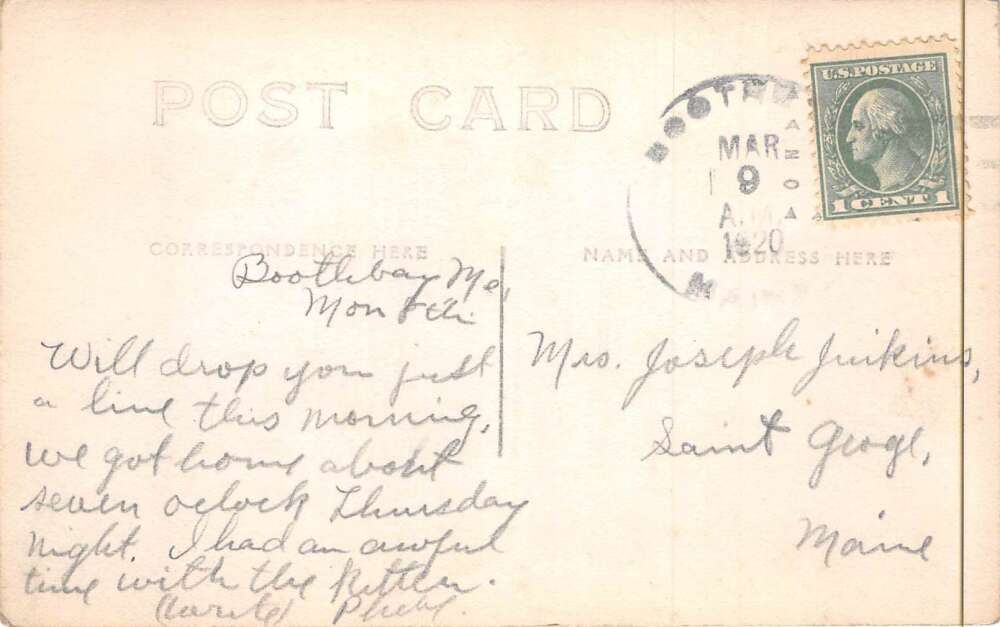 POST CARD
U.S. POSTAGE
1 CENT 1
BOOTHB
MAR
9
A.M.
1920
CORRESPONDENCE HERE
NAME AND ADDRESS HERE
Boothbay Me,
Mon 8th
Will drop you just
a line this morning,
we got home about
seven oclock Thursday
night. I had an awful
time with the kitten.
(write) Phebe.
Mrs. Joseph Jinkins,
Saint Geoge,
Maine